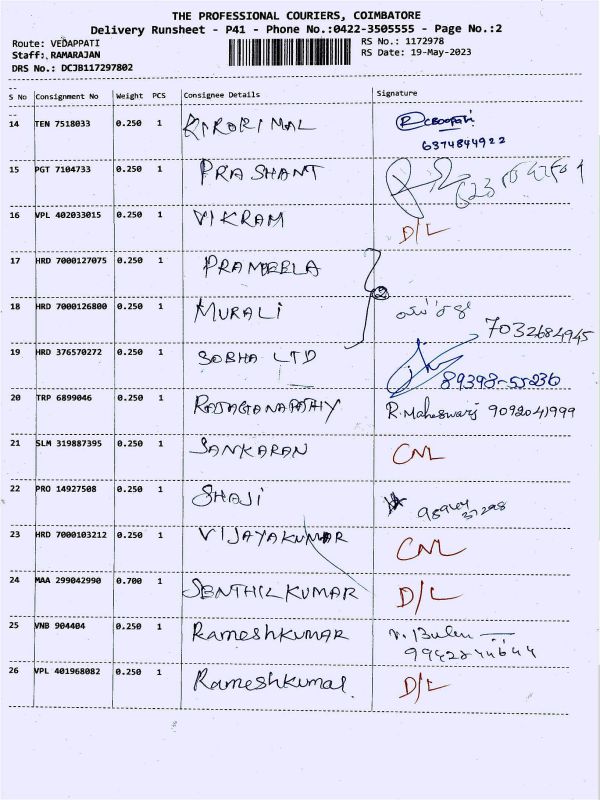 THE PROFESSIONAL COURIERS, COIMBATORE
Delivery Runsheet - P41 - Phone No.:0422-3505555 - Page No.:2
Route: VEDAPPATI RS No.: 1172978
Staff: RAMARAJAN RS Date: 19-May-2023
DRS No.: DCJB117297802
S No Consignment No Weight PCS Consignee Details Signature
14 TEN 7518033 0.250 1 KIRORIMAL
6374844922
15 PGT 7104733 0.250 1 PRASHANT
16 VPL 402033015 0.250 1 VIKRAM D/L
17 HRD 7000127075 0.250 1 PRAMEELA
2
18 HRD 7000126800 0.250 1 MURALI
7032684945
19 HRD 376570272 0.250 1 SOBHA LTD
89398-55236
20 TRP 6899046 0.250 1 RAJAGANAPATHY R. Maheswari 9092041999
21 SLM 319887395 0.250 1 SANKARAN CNL
22 PRO 14927508 0.250 1 SHAJI
23 HRD 7000103212 0.250 1 VIJAYAKUMAR CNL
24 MAA 299042990 0.700 1 SENTHIL KUMAR D/L
25 VNB 904404 0.250 1 RameshKUMAR
26 VPL 401968082 0.250 1 RameshKumar D/L